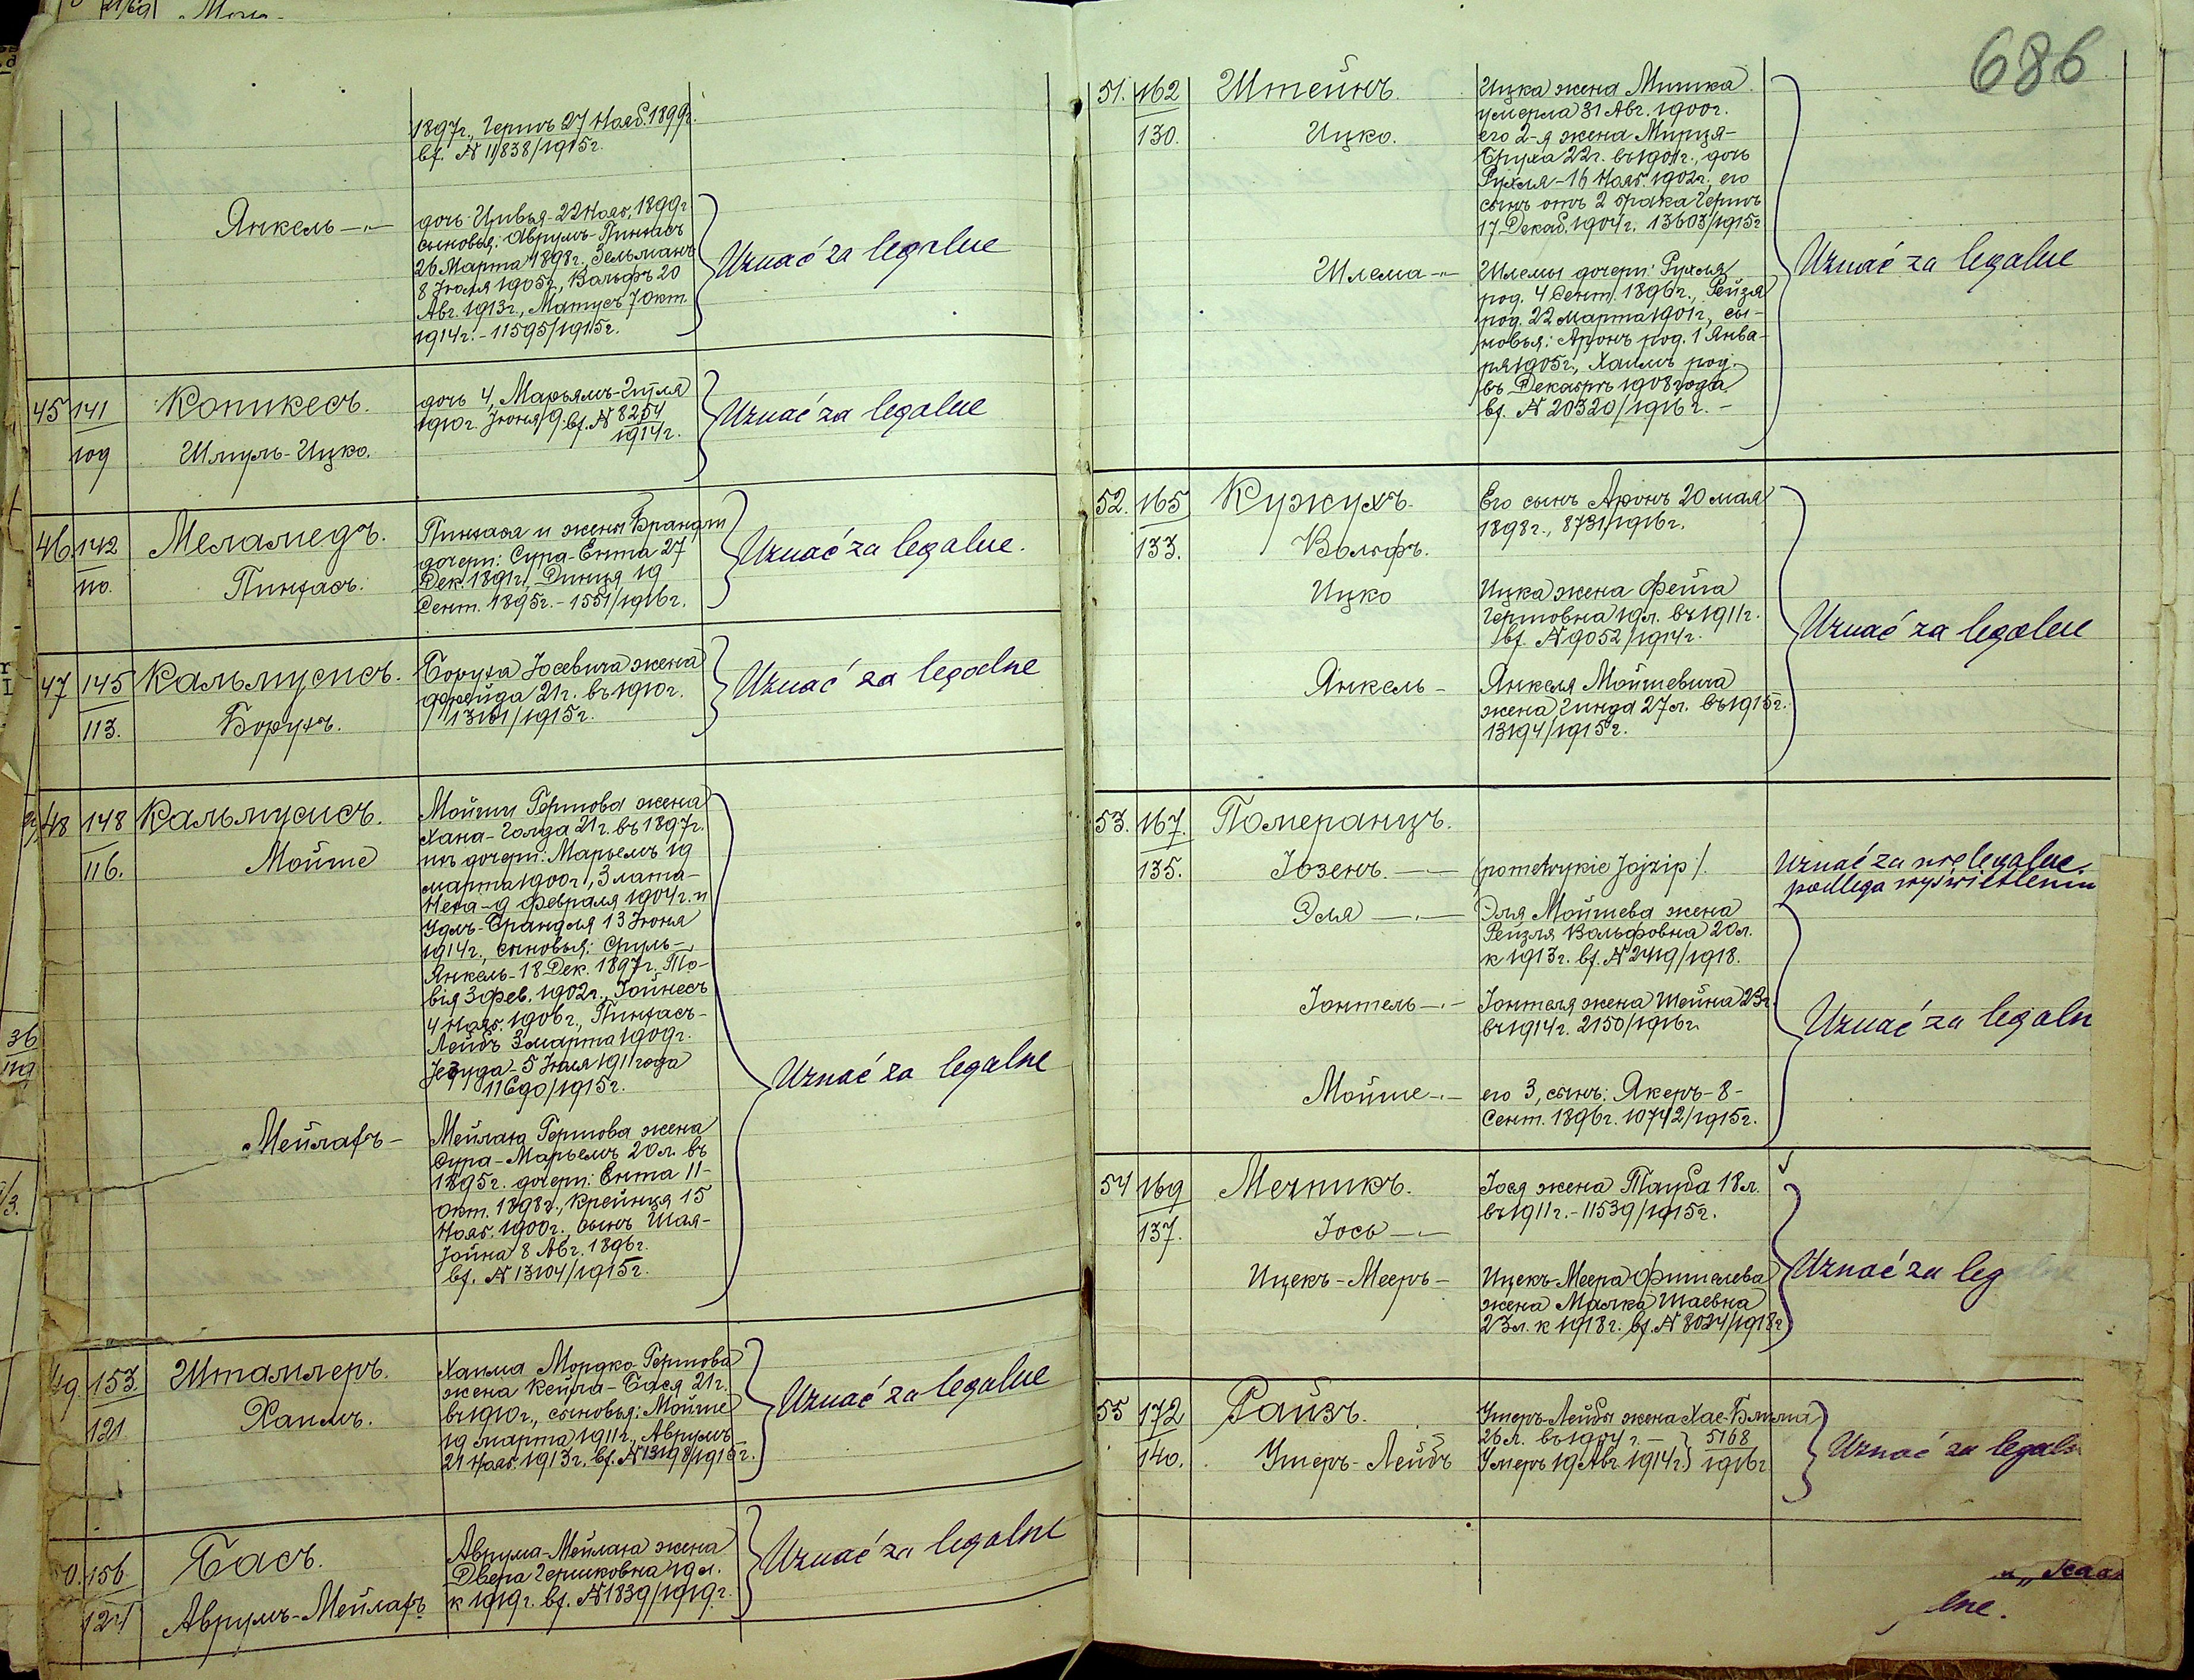 686
1897г., Герть 27 Нояб. 1899г.
вх. № 11838/1915г.
Янкель —"—
дочь Цивья-22 Нояб. 1899г
сыновья: Аврумъ-Пинхасъ
26 Марта 1898г., Зельманъ
8 Іюля 1905г., Вольфъ 20
Авг. 1913г., Матусъ 7 Окт.
1914г.-11595/1915г.
Uznać za legalne
45 141
109
Копикесъ.
Шмуль-Ицко.
дочь 4, Марьямъ-Гитля
1910г. Іюня 9 вх. № 8254
1914г.
Uznać za legalne
46. 142
110.
Меламедъ.
Пинхасъ.
Пинхаса и жены Брандли
дочери: Сура-Ента 27
Дек. 1891г., Динця 19
Сент. 1895г.-1551/1916г.
Uznać za legalne.
47 145
113.
Кальмусисъ.
Борухъ.
Боруха Іосевича жена
Фрейда 21г. въ 1910г.
13101/1915г.
Uznać za legalne
48 148
116.
Кальмусисъ.
Мойше
Мойши Гершова жена
Хана-Голда 21г. въ 1897г.
ихъ дочери: Марьемъ 19
марта 1900г., Злата-
Неха-9 февраля 1904г. и
Удль-Брандля 13 Іюня
1914г., сыновья: Сруль-
Янкель-18 Дек. 1897г. То-
вія 3 фев. 1902г., Іойнесъ
4 Нояб. 1906г., Пинхасъ-
Лейбъ 3 марта 1909г.
Іегуда-5 Іюля 1911 года
11690/1915г.
Мейлахъ —
Мейлаха Гершова жена
Сура-Марьемъ 20л. въ
1895г. дочери: Ента 11-
Окт. 1898г., Крейнця 15
Нояб. 1900г., сынъ Шая-
Іойна 8 Авг. 1896г.
вх. № 13104/1915г.
Uznać za legalne
49 153.
121
Штаммеръ.
Хаимъ.
Хаима Мордко-Гершова
жена Кейла-Бася 21г.
въ 1910г., сыновья: Мойше
19 марта 1911г., Аврумъ
21 Нояб. 1913г. вх. № 13198/1915г.
Uznać za legalne
50. 156
124
Басъ.
Аврумъ-Мейлахъ
Аврума-Мейлаха жена
Двера Гершковна 19л.
к 1919г. вх. № 1839/1919г.
Uznać za legalne
51. 162
130.
Штейнъ.
Ицко.
Ицка жена Мишка
умерла 31 Авг. 1900г.
его 2-я жена Мирця-
Бруха 22г. въ 1901г., дочь
Рухля-16 Нояб. 1902г., его
сынъ отъ 2 брака Герть
17 Декаб. 1904г. 13603/1915г
Шлема —"—
Шлемы дочери: Рухля
род. 4 Сент. 1896г., Рейзя
род. 22 марта 1901г., сы-
новья: Аронъ род. 1 Янва-
ря 1905г., Хаимъ род.
въ Декабрѣ 1908 года
вх. № 20320/1916г. -
Uznać za legalne
52. 165
133.
Кужухъ.
Вольфъ.
Его сынъ Аронъ 20 мая
1898г., 8731/1916г.
Ицко
Ицка жена Фейга
Гершовна 19л. въ 1911г.
вх. № 9052/1914г.
Янкель —
Янкеля Мойшевича
жена Гинда 27л. въ 1915г.
13194/1915г.
Uznać za legalne
53. 167.
135.
Померанцъ.
Іозенъ. —"—
(po metrykie Jojzip).
Uznać za nielegalne.
podlega wyświetleniu
Эля —"—
Эля Мойшева жена
Рейзля Вольфовна 20л.
к 1913г. вх. № 2419/1918.
Іонтель —"—
Іонтеля жена Шейна 23г.
въ 1914г. 2150/1916г.
Мойше —"—
его 3, сынъ: Якеръ-8-
Сент. 1896г. 10742/1915г.
Uznać za legaln
54 169
137.
Мечникъ.
Іось —"—
Іося жена Тауба 18л.
въ 1911г.-11539/1915г.
Ицекъ-Мееръ —
Ицекъ-Меера Фишелева
жена Малка Шаевна
23л. к 1918г. вх. № 8024/1918г
Uznać za leg
55 172
140.
Райзъ.
Ушеръ-Лейбъ
Ушеръ-Лейбы жена Хае-Блима
26л. въ 1904г. — } 5168
Умеръ 19 Авг. 1914г. } 1916г
Uznać za legaln
lne.